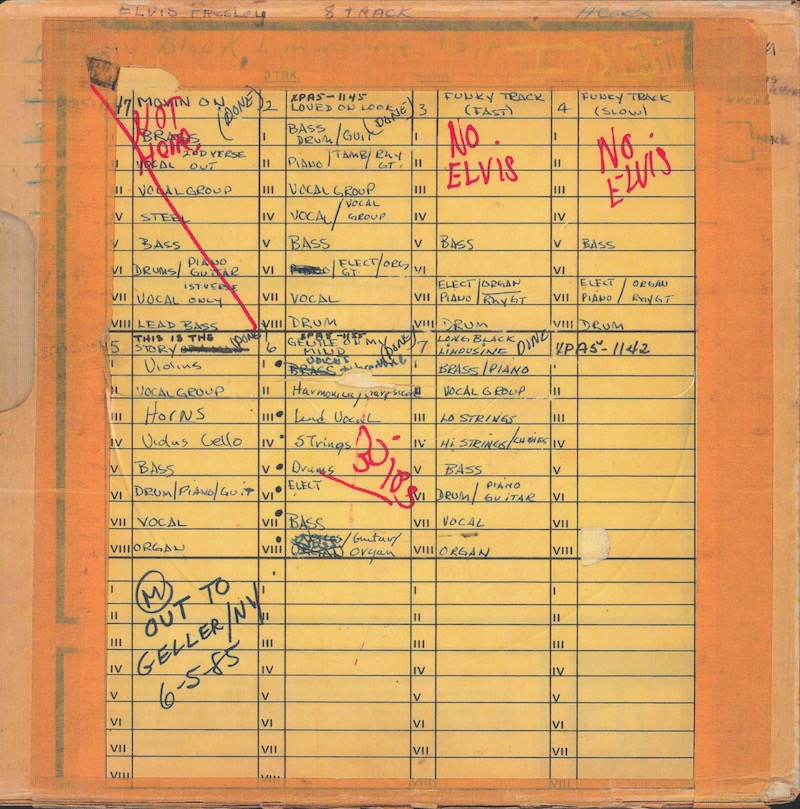 ELVIS PRESLEY 8 TRACK
Black Limousine
1 MOVIN ON (DONE)
NOT HERE
I BRASS
II VOCAL 2ND VERSE OUT
III VOCAL GROUP
IV STEEL
V BASS
VI DRUMS/PIANO GUITAR
VII 1ST VERSE VOCAL ONLY
VIII LEAD BASS
2 XPA5-1145
LOVED ON LOOK (DONE)
I BASS DRUM/GUIT
II PIANO/TAMB/RHY GT.
III VOCAL GROUP
IV VOCAL/VOCAL GROUP
V BASS
VI /ELECT/ORG GT
VII VOCAL
VIII DRUM
3 FUNKY TRACK
(FAST)
NO.
ELVIS
I
II
III
IV
V BASS
VI
ELECT/ORGAN
VII PIANO/RHY GT
VIII DRUM
4 FUNKY TRACK
(SLOW)
NO.
ELVIS
I
II
III
IV
V BASS
VI
ELECT/ORGAN
VII PIANO/RHY GT
VIII DRUM
5 THIS IS THE
STORY (DONE)
I Violins
II VOCAL GROUP
III HORNS
IV Violas Cello
V BASS
VI DRUM/PIANO/GUIT
VII VOCAL
VIII ORGAN
6 XPA5-1155
GENTLE ON MY
MIND (DONE)
I BRASS VOICES
II Harmonica/harpsicord
III Lead Vocal
IV Strings
V Drums
VI ELECT
VII BASS
VIII ORGAN /Guitar/ organ
7 LONG BLACK
LIMOUSINE DONE
I BRASS/PIANO
II VOCAL GROUP
III LO STRINGS
IV Hi STRINGS/CHIMES
V BASS
VI DRUM/PIANO GUITAR
VII VOCAL
VIII ORGAN
XPA5-1142
I
II
III
IV
V
VI
VII
VIII
M
OUT TO
GELLER/NY
6-5-85
I
II
III
IV
V
VI
VII
VIII